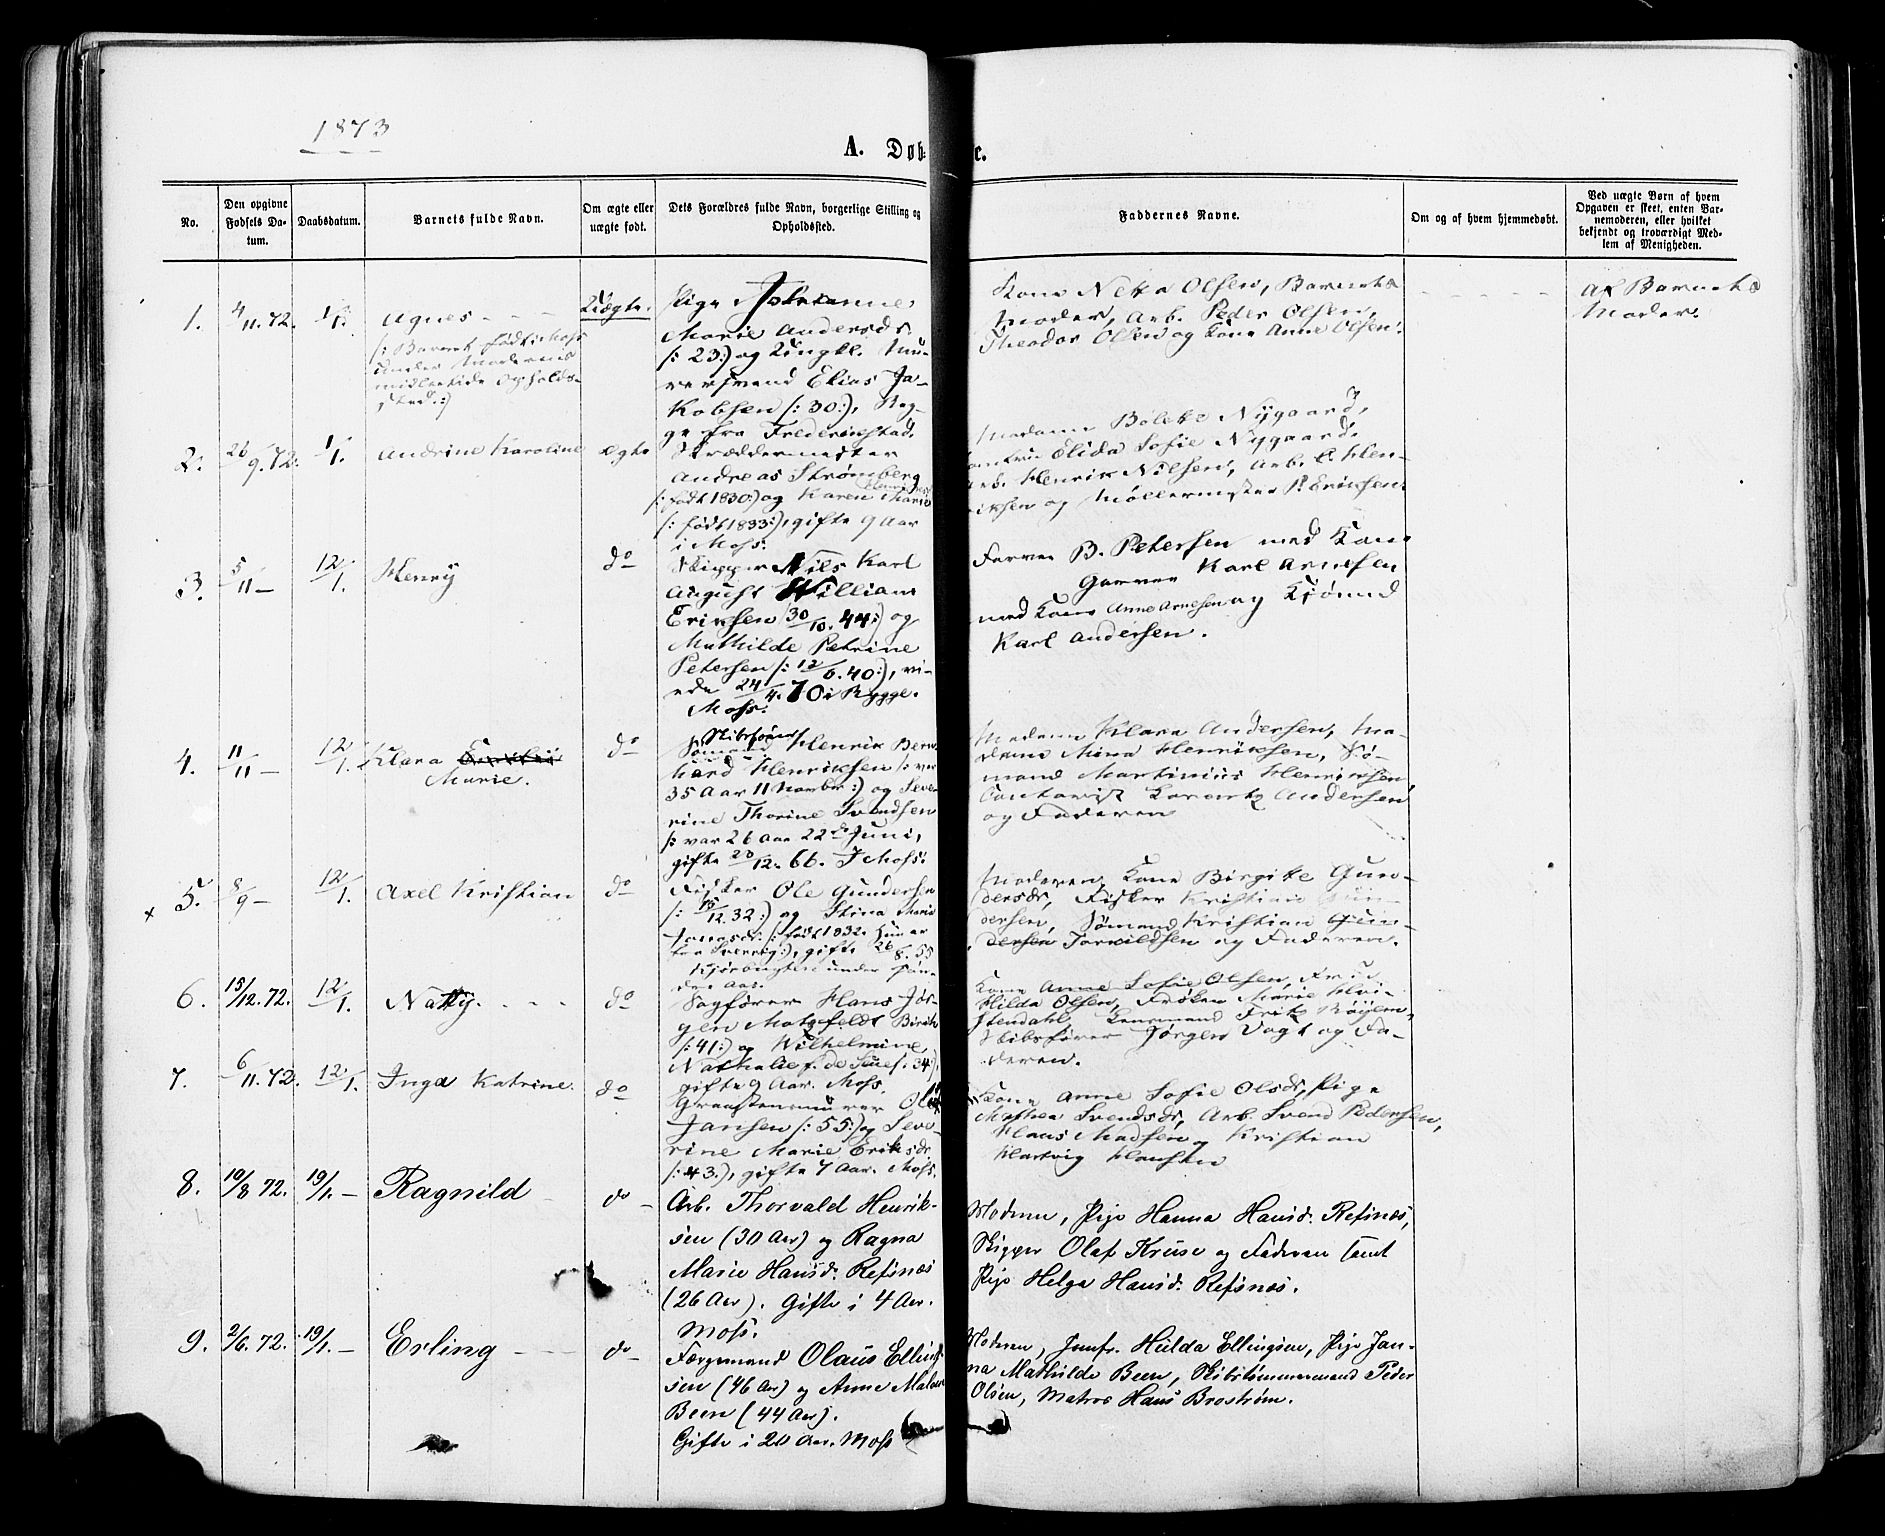 1873
A. Døbte.
No.
Den opgivne Fødsels Datum.
Daabsdatum.
Barnets fulde Navn.
Om ægte eller uægte født.
Dets Forældres fulde Navn, borgerlige Stilling og Opholdssted.
Faddernes Navne.
Om og af hvem hjemmedøbt.
Ved uægte Børn af hvem Opgaven er skeet, enten Barnemoderen, eller hvilket bekjendt og troværdigt Medlem af Menigheden.
1. 4/11.72. 1/1. Agnes - - - Uægte.
/: Barnet født i Moss
under Moderens
midlertidige Opholds-
sted.:)
Pige
Marie Andersdr.
/: 23:) og Ungkl. Mu-
rersvend Elias Ja-
kobsen /: 30:), Beg-
ge fra Frederikstad.
Kone Netta Olsen, Barnets
Moder, Arb. Peder Olsen,
Theodor Olsen og Kone Anne Olsen.
Af Barnets
Moder.
2. 26/9.72. 1/1. Andrine Karoline ægte
Skræddermester
Andreas Strømberg
/: født 1830:) og Karen Marie
/: født 1833:), gifte 9 Aar
i Moss.
Madame Bolette Nygaard,
Elida Sofie Nygaard,
Henrik Nilsen, Arb. E. Hen-
riksen og Møllermester P. Eriksen.
3. 5/11 - 12/1. Henry do
Skipper Nils Karl
August William
Eriksen 30/10.44:) og
Mathilde Petrine
Petersen /: 12/6.40:), vi-
ede 24/4.70 i Rygge.
Moss.
Farver B. Petersen med Kone
Garver Karl Arnesen
med Kone Anne Arnesen og
Karl Andersen.
4. 11/11 - 12/1. Klara
Marie. do
Skibsfører
Sømand Henrik Bern-
hard Henriksen /: var
35 Aar 11 Novbr:) og Seve-
rine Thorine Svendsen
/: var 26 Aar 22de Juni,
gifte 28/12.66. I Moss.
Madame Klara Andersen, Ma-
dame Mina Henriksen, Sø-
mand Martinius Henriksen
Contorist Lorentz Andersen
og Faderen
x 5. 8/9 - 12/1. Axel Kristian do
Fisker Ole Gundersen
/: 15/12.32:) og Stina Marie
Jonsdr. /: født 1832. Hun er
fra Sverrig:), gifte 26/8.55
under Søn-
dre Aas.
Moderen, Kone Birgite Gun-
dersdr, Fisker Kristian Gun-
dersen, Sømand Kristian Gun-
dersen Torkildsen og Faderen.
6. 15/12.72. 12/1. Natty. - - - do
Sagfører Hans Jør-
gen Motzfeldt Birch
/: 41:) og Wilhelmine
Nathalie f. de Seue /: 34:),
gifte 9 Aar. Moss.
Kone Anne Sofie Olsen, Fru
Hilda Olsen, Frøken Marie Hvi-
stendahl, Lensmand Fritz Røyem,
Skibsfører Jørgen Vogt og Fa-
deren.
7. 6/11.72. 12/1. Inga Katrine. do
Graastensmurer Ole
Jansen /: 55:) og Seve-
rine Marie Eriksdr.
/: 43.), gifte 7 Aar. Moss.
Kone Anne Sofie Olsdr, Pige
Mathea Svendsdr, Arb. Svend Pedersen,
Klaus Madsen og Kristian
Hartvig Hansen
8. 10/8 72. 19/1. - Ragnild do -
Arb. Thorvald Henrik-
sen (30 Aar) og Ragna
Marie Hansd. Refsnæs
(26 Aar). Gifte i 4 Aar.
Moss.
Moderen, Pige Hanna Hansd. Refsnæs,
Skipper Olaf Kruse og Faderen samt
Pige Helga Hansd. Refsnæs.
9. 2/6.72. 19/1. - Erling - - - do -
Færgemand Olaus Elling-
sen (46 Aar) og Anne Malene
Been (44 Aar).
Gifte i 20 Aar. Moss
Moderen, Jomfr. Hulda Ellingsen, Pige Jan-
na Mathilde Been, Skibstømmermand Peder
Olsen, Matros Hans Brostrøm.